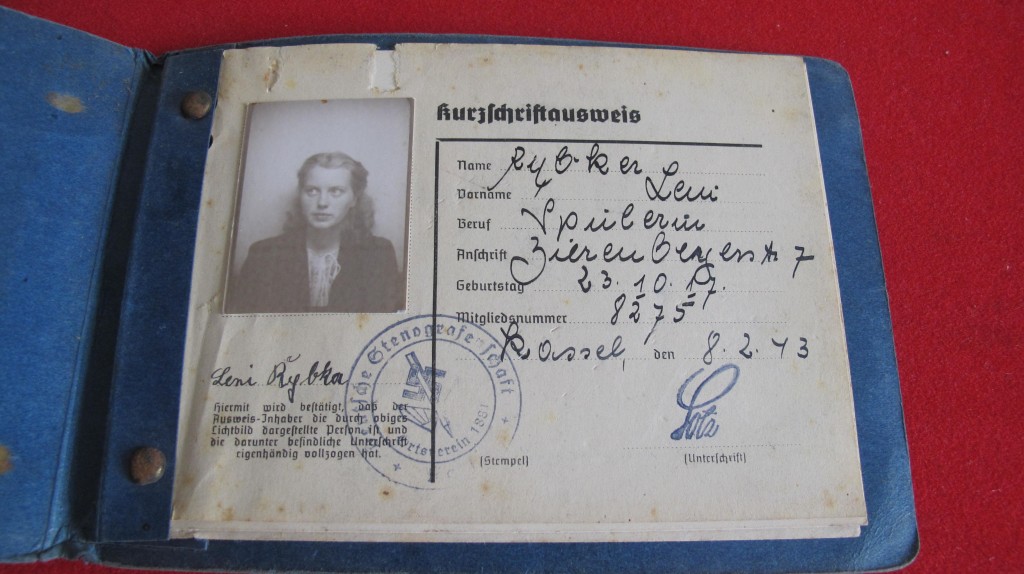 Kurzschriftausweis
Name Rybker
Vorname Leni
Beruf Spulerin
Anschrift Zierenbergerstr 7
Geburtstag 23.10.17.
Mitgliedsnummer 8275
Kassel, den 8.2.43
Leni Rybka
Hiermit wird bestätigt, daß der
Ausweis-Inhaber die durch obiges
Lichtbild dargestellte Person ist und
die darunter befindliche Unterschrift
eigenhändig vollzogen hat.
Stenografenschaft
Ortsverein 1861
(Stempel)
(Unterschrift)